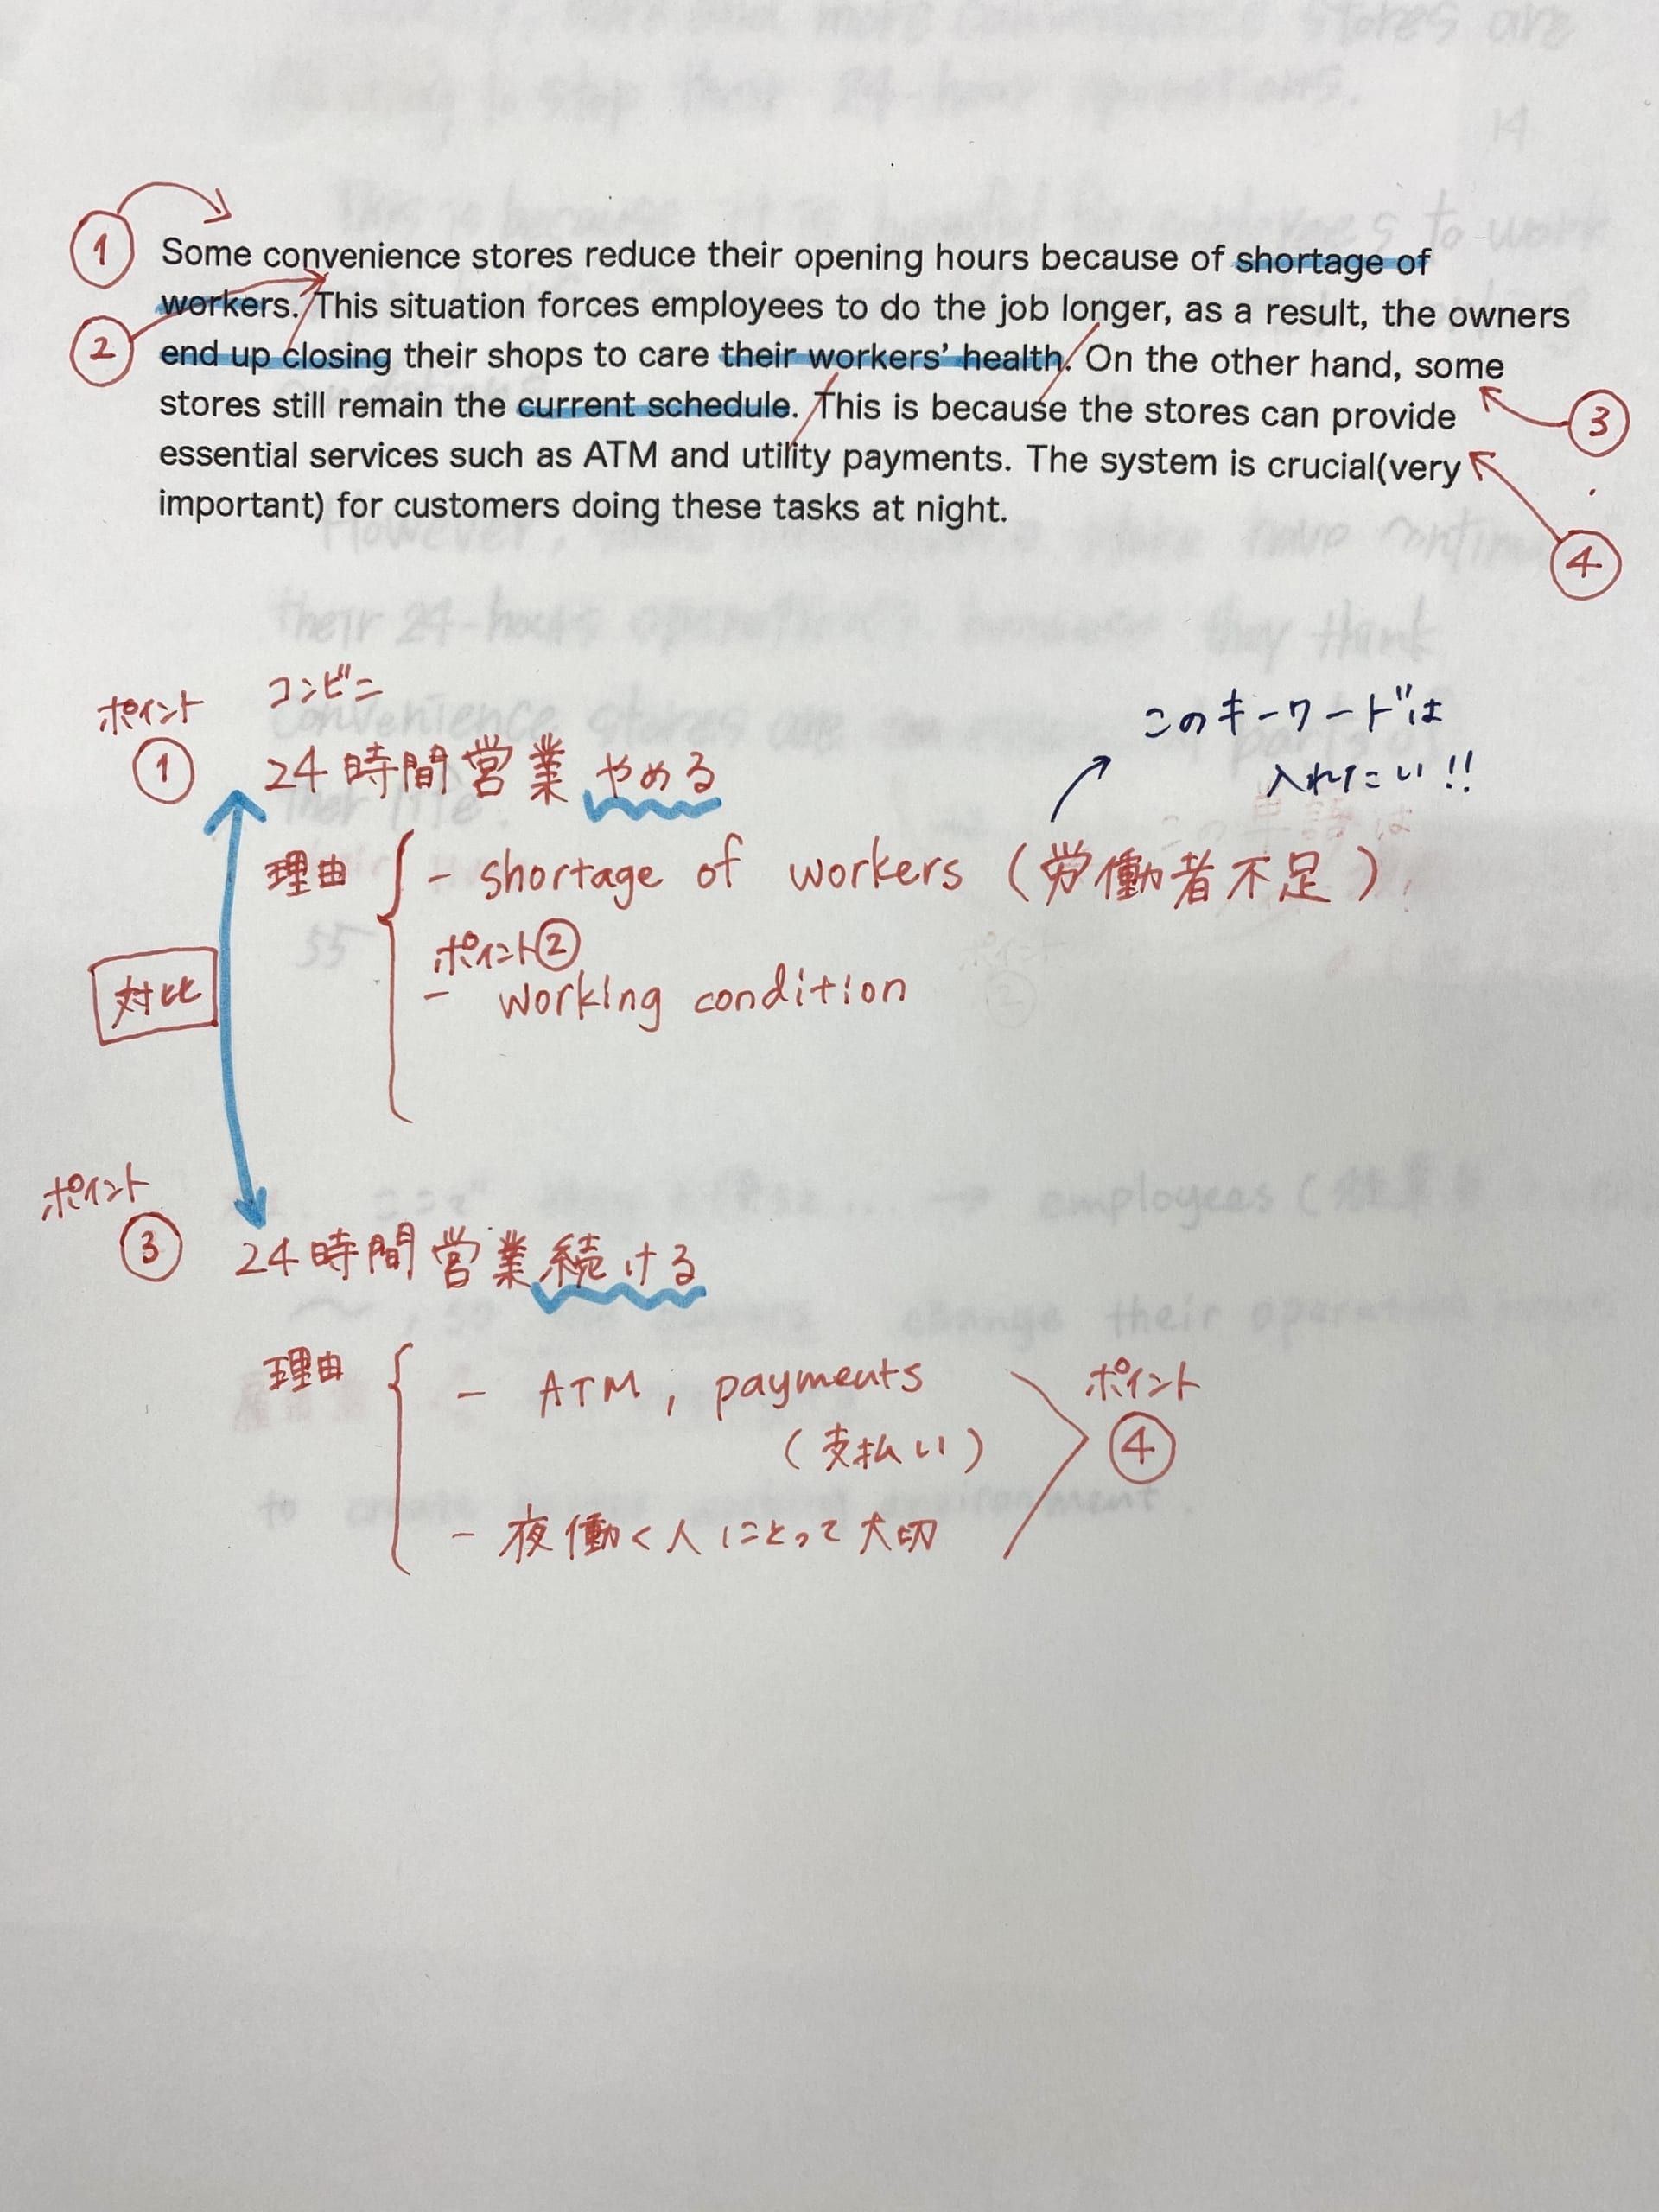 ① Some convenience stores reduce their opening hours because of shortage of
② workers. This situation forces employees to do the job longer, as a result, the owners
end up closing their shops to care their workers' health. On the other hand, some
stores still remain the current schedule. This is because the stores can provide ③
essential services such as ATM and utility payments. The system is crucial(very
important) for customers doing these tasks at night. ④
コンビニ
ポイント
① 24時間営業やめる
このキーワードは
入れたい!!
理由 - shortage of workers (労働者不足)
ポイント②
- working condition
対比
ポイント
③ 24時間営業続ける
理由 - ATM, payments
(支払い)
ポイント
④
- 夜働く人にとって大切